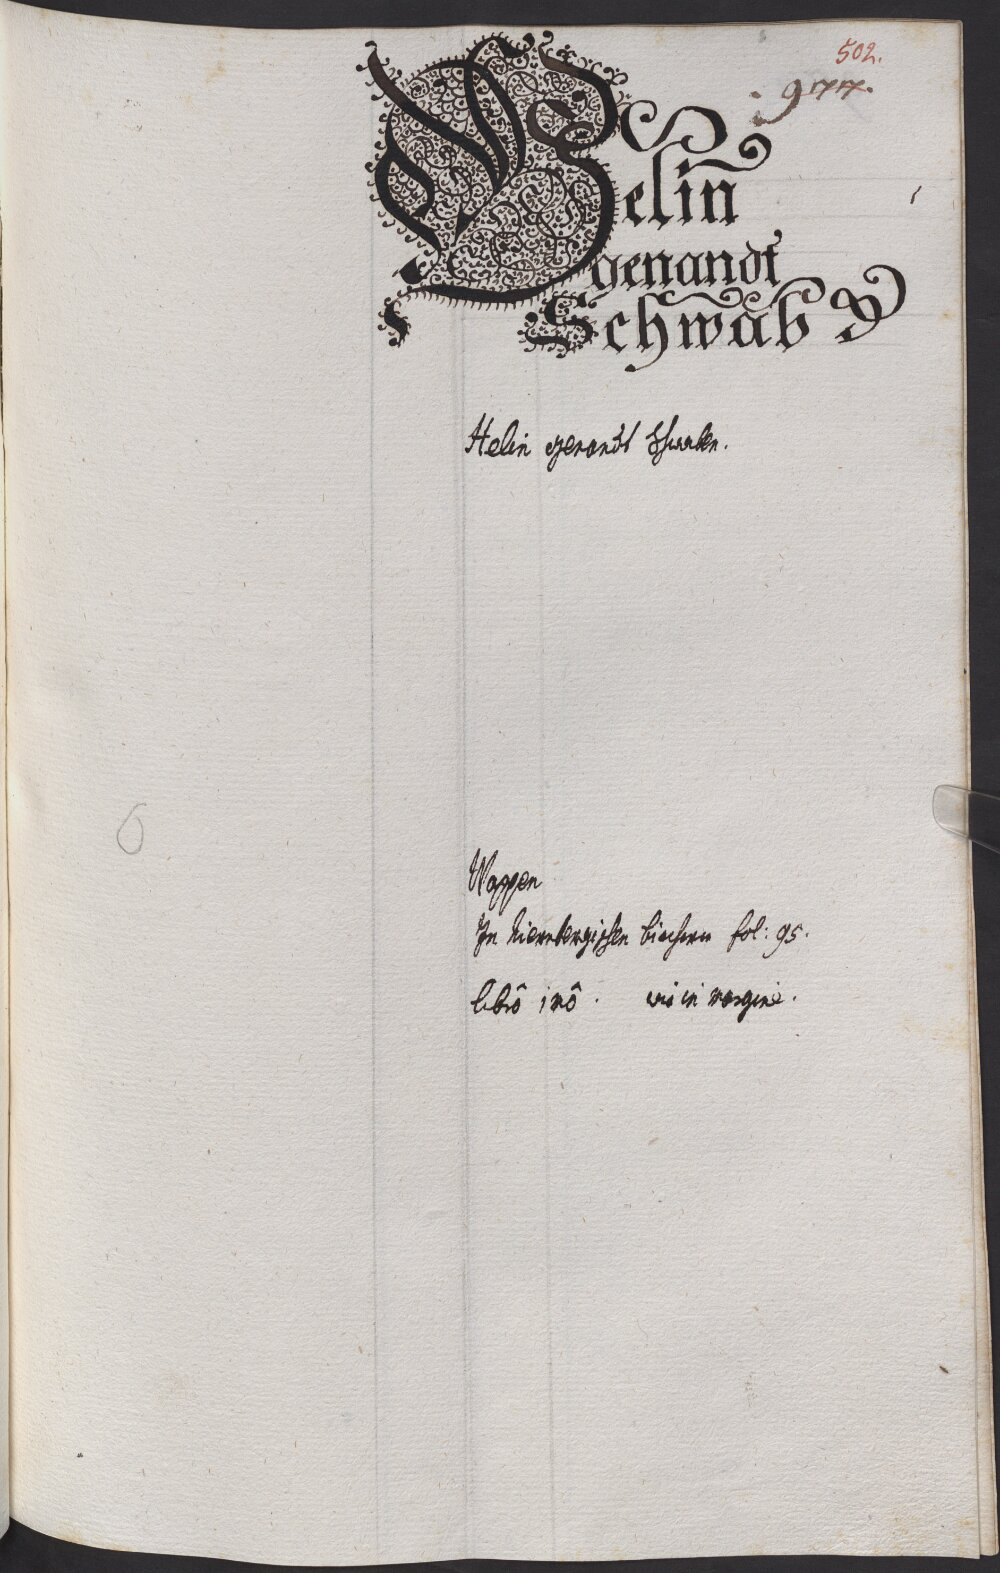 502.
977.
Helin
genandt
Schwab
Helin genandt Schwaben.
Wappen
In Niernbergischen biechern fol: 95.
librô imô. wie in margine.
6